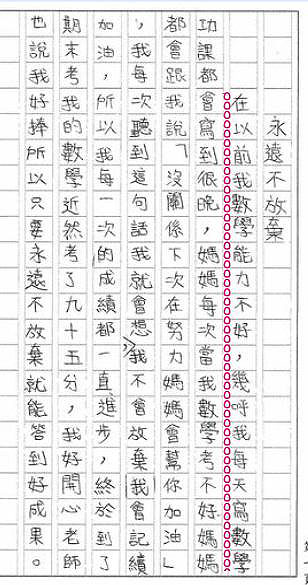 永遠不放棄
在以前我數學能力不好，幾呼我每天寫數學
功課都會寫到很晚，媽媽每次當我數學考不好媽媽
都會跟我說「沒關係，下次在努力媽媽會幫你加油」
，我每次聽到這句話我就會想，我不會放棄我會記續
加油，所以我每一次的成績都一直進步，終於到了
期末考，我的數學近然考了九十五分，我好開心老師
也說我好捧所以只要永遠不放棄就能答到好成果。